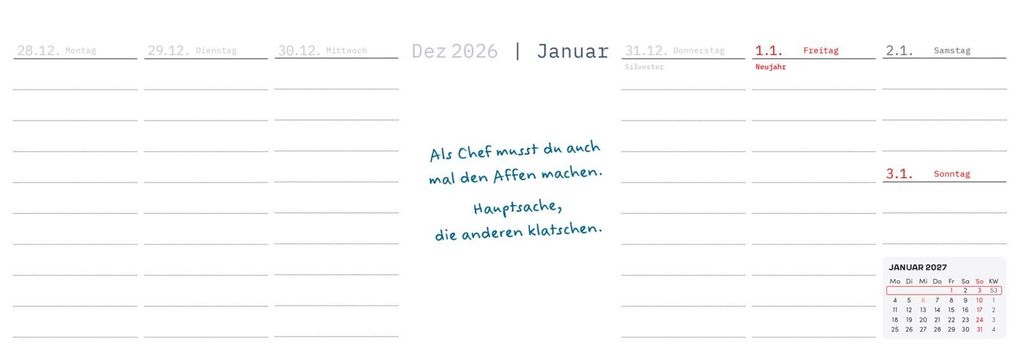 28.12. Montag
29.12. Dienstag
30.12. Mittwoch
Dez 2026 | Januar
31.12. Donnerstag
Silvester
1.1. Freitag
Neujahr
2.1. Samstag
3.1. Sonntag
Als Chef musst du auch
mal den Affen machen.
Hauptsache,
die anderen klatschen.
JANUAR 2027
Mo Di Mi Do Fr Sa So KW
1 2 3 53
4 5 6 7 8 9 10 1
11 12 13 14 15 16 17 2
18 19 20 21 22 23 24 3
25 26 27 28 29 30 31 4